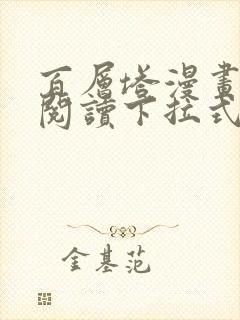 百层塔漫畫
閱讀下拉式
金基范